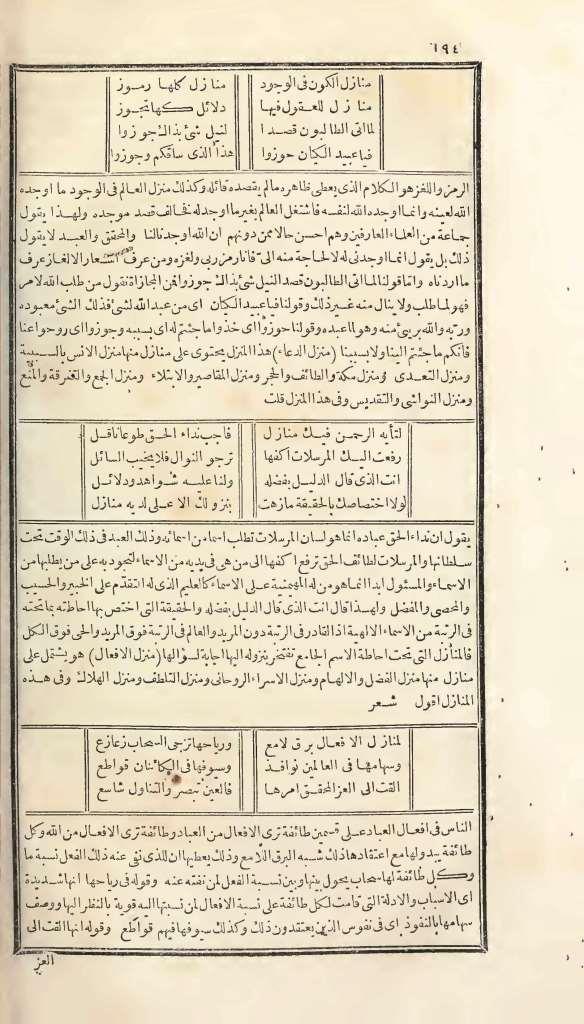 ١٩٤
منازل الكون فى الوجود منازل كلها رموز
منازل للعقول فيها دلائل كلها تجوز
لما اتى الطالبون قصدا لنيل شئ بذاك جوزوا
فيا عبيد الكيان حوزوا هذا الذى ساقكم وجوزوا
الرمز واللغز هو الكلام الذى يعطى ظاهره ما لم يقصده قائله وكذلك منزل العالم فى الوجود ما اوجده
الله لعينه وانما اوجده الله لنفسه فاشتغل العالم بغير ما اوجد له فخالف قصد موجده ولهذا يقول
جماعة من العلماء العارفين وهم احسن حالا ممن دونهم ان الله اوجدنا لنا والمحقق والعبد لا يقول
ذلك بل يقول انما اوجدنى له لا لحاجة منه الى فانا رمز ربى ولغزه ومن عرف اشعار الالغاز عرف
ما اردناه واما قولنا لما اتى الطالبون قصدا لنيل شئ بذاك جوزوا من المجازاة نقول من طلب الله لامر
فهو لما طلب ولا ينال منه غير ذلك وقولنا فيا عبيد الكيان اى من عبد الله لشئ فذلك الشئ معبوده
وربه والله برىء منه وهو لما عبده وقولنا حوزوا اى خذوا ما جئتم له اى بسببه وجوزوا اى روحوا عنا
فانكم ما جئتم الينا ولا بسببنا (منزل الدعاء) هذا المنزل يحتوى على منازل منها منزل الانس بالسبيبة
ومنزل التعدى ومنزل مكة والطائف والحجر ومنزل المقاصير والابتلاء ومنزل الجمع والتفرقة والمنع
ومنزل النواشى والتقديس وفى هذا المنزل قلت
لتأيه الرحمن فيك منازل فاجب نداء الحق طوعا ياقل
رفعت اليك المرسلات اكفها ترجو النوال فلا يخيب السائل
انت الذى قال الدليل بفضله ولنا عليه شواهد ودلائل
لولا اختصاصك بالحقيقة ما زهت بنزولك الاعلى لديه منازل
يقول ان نداء الحق عباده انما هو لسان المرسلات تطلب اسما من اسمائه وذلك العبد فى ذلك الوقت تحت
سلطانها والمرسلات لطائف الحق ترفع اكفها الى من هى فى يديه من الاسماء لتجود به على من يطلبها من
الاسماء والمسئول ابدا انما هو من له المهيمنية على الاسماء كالعليم الذى له التقدّم على الخبير والحسيب
والمحصى والمفضل ولهذا قال انت الذى قال الدليل بفضله والحقيقة التى اختص بها احاطته بما تحته
فى الرتبة من الاسماء الالهية اذ القادر فى الرتبة دون المريد والعالم فى الرتبة فوق المريد والحى فوق الكل
فالمنازل التى تحت احاطة الاسم الجامع تفتخر بنزوله اليها اجابة لسؤالها (منزل الافعال) هو يشتمل على
منازل منها منزل الفضل والالهام ومنزل الاسراء الروحانى ومنزل التلطف ومنزل الهلاك وفى هذه
المنازل اقول شعر
لمنازل الافعال برق لامع ورياحها تزجى السحاب زعازع
وسهامها فى العالمين نوافذ وسيوفها فى الكائنات قواطع
القت الى العز المحقق امرها فالعين تبصر والتناول شاسع
الناس فى افعال العباد على قسمين طائفة ترى الافعال من العباد وطائفة ترى الافعال من الله وكل
طائفة يبدو لها مع اعتقادها ذلك شبه البرق اللامع وذلك يعطيها ان للذى نفى عنه ذلك الفعل نسبة ما
وكل طائفة لها سحاب يحول بينها وبين نسبة الفعل لمن نفته عنه وقوله فى رياحها انها شديدة
اى الاسباب والادلة التى قامت لكل طائفة على نسبة الافعال لمن نسبتها اليه قوية بالنظر اليها ووصف
سهامها بالنفوذ اى فى نفوس الذين يعتقدون ذلك وكذلك سيوفها فيهم قواطع وقوله انها القت الى
العز